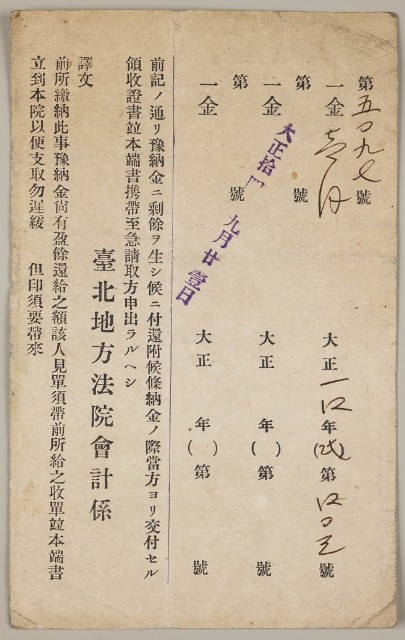 第五〇九七號
一金壹円 大正一四年( )第 號
第 號
一金 大正 年( )第 號
第 號
一金 大正 年( )第 號
大正拾四 九月廿壹日
前記ノ通リ豫納金ニ剩餘ヲ生シ候ニ付還附候條納金ノ際當方ヨリ交付セル
領收證書竝本端書携帶至急請取方申出ラルヘシ
臺北地方法院會計係
譯文
前所繳納此事豫納金尚有盈餘還給之額該人見單須帶前所給之收單竝本端書
立到本院以便支取勿遲緩 但印須要帶來